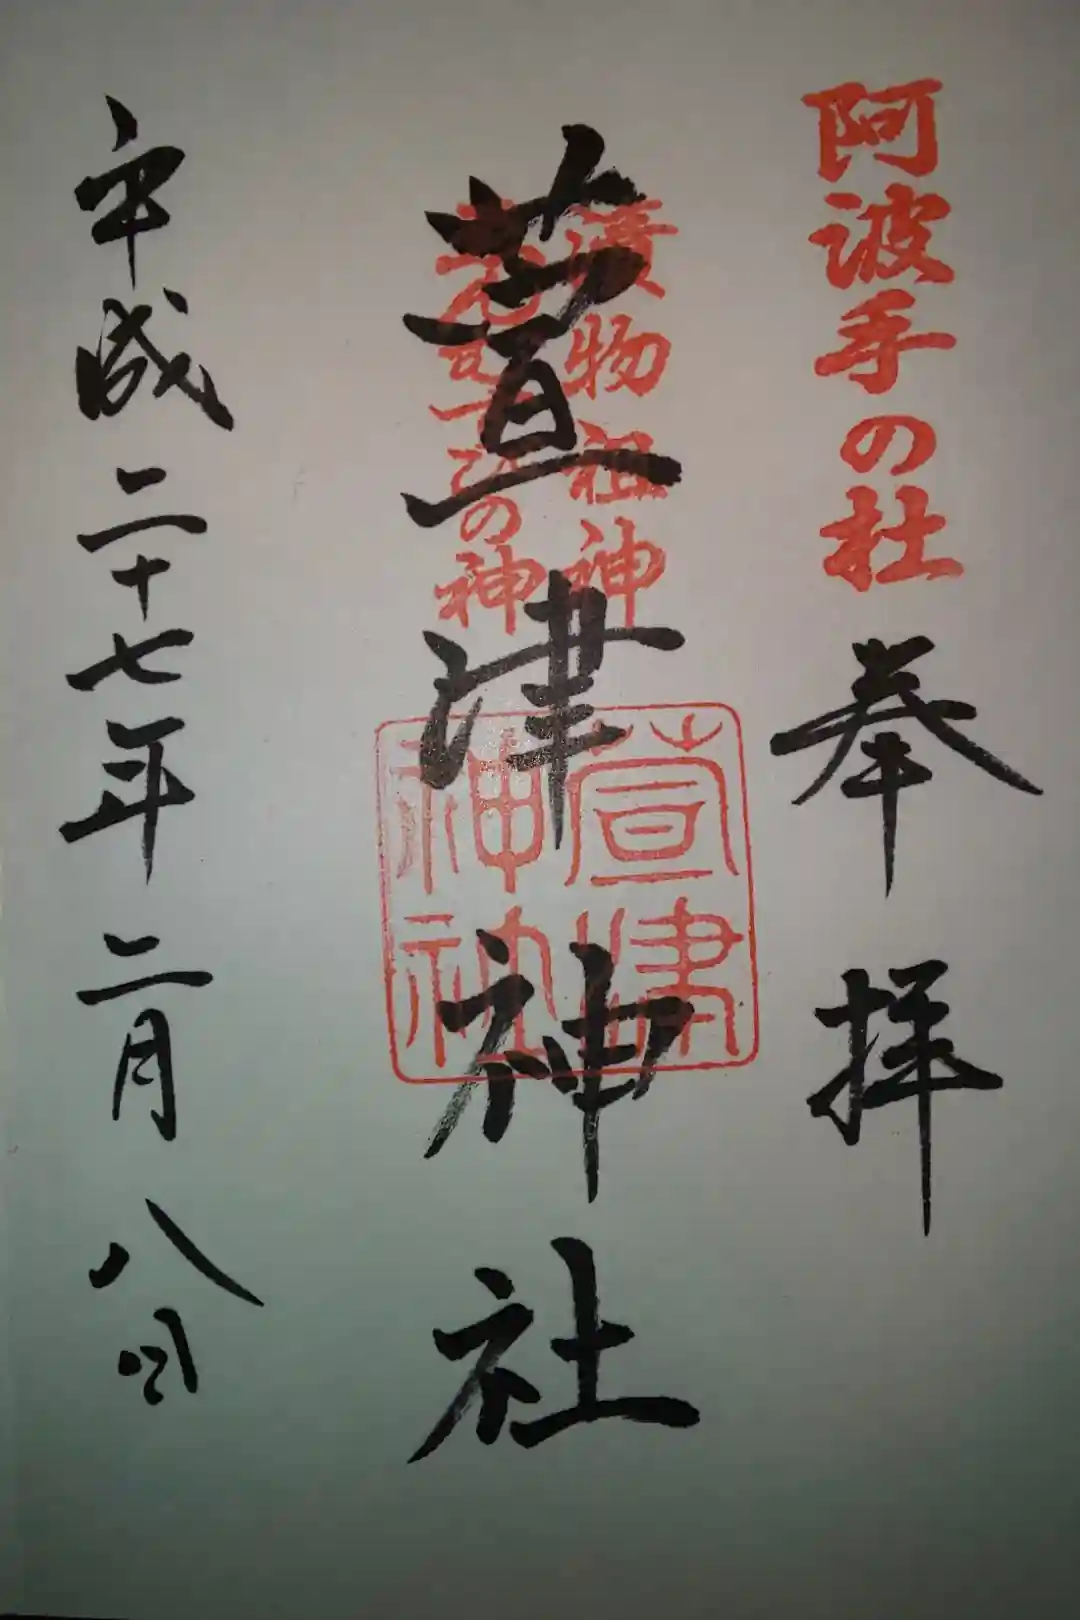 阿波手の杜
奉拝
漬物祖神
萱津神社
の神
萱津
神社
平成二十七年二月八日